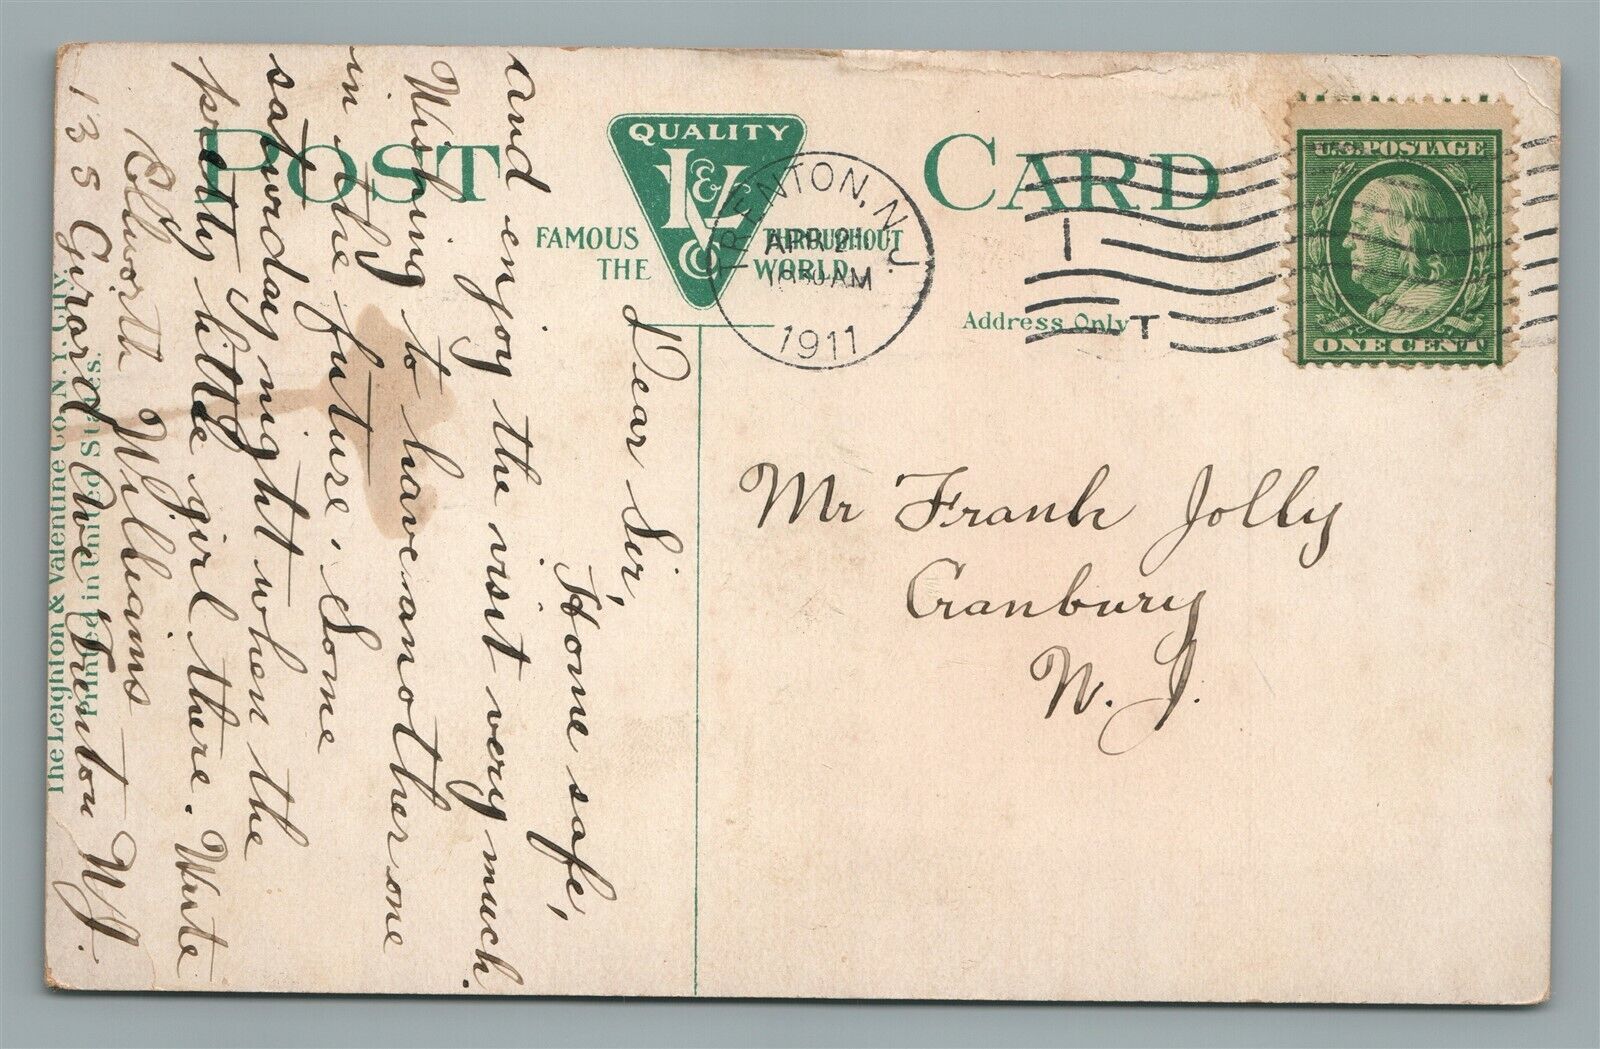 POST CARD
QUALITY
L&V Co
FAMOUS THROUGHOUT
THE WORLD
TRENTON, N.J.
APR 21
AM
1911
T
U.S. POSTAGE
ONE CENT
Address Only
Dear Sir,
Home safe,
and enjoy the visit very much.
Wishing to have another one
in the future. Some
saturday night when the
pretty little girl there. Write
Ellworth Williams
135 Girard Ave Trenton N.J.
Mr Frank Jolly
Cranbury
N. J.
The Leighton & Valentine Co. N. Y. City.
Printed in United States.